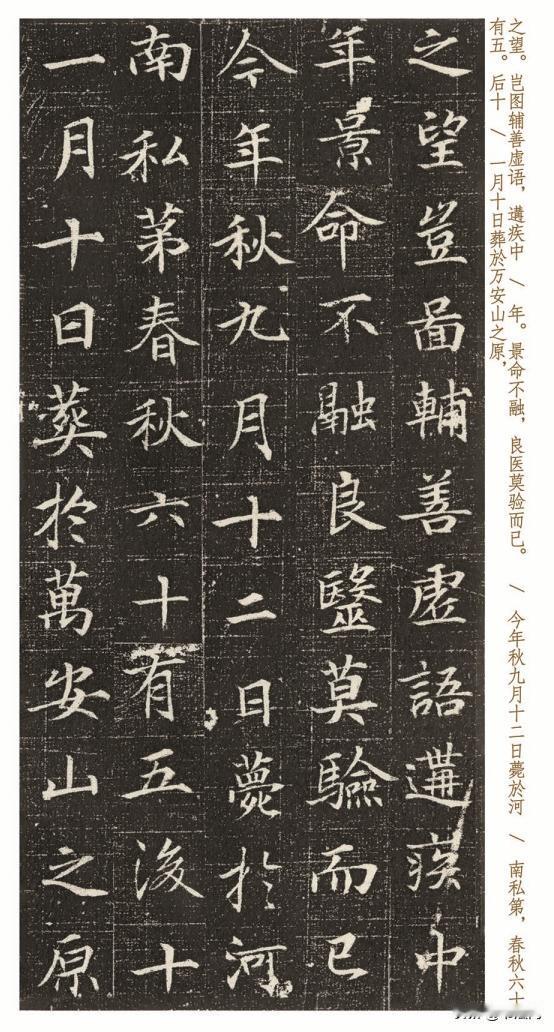 之望。岂图辅善虚语，遘疾中 \ 年。景命不融，良医莫验而已。 \ 今年秋九月十二日薨於河 \ 南私第，春秋六十
有五。后十 \ 一月十日葬於万安山之原，
之望豈啚輔善虛語遘疾中
年景命不融良醫莫驗而已
今年秋九月十二日薨於河
南私苐春秋六十有五後十
一月十日葬於萬安山之原